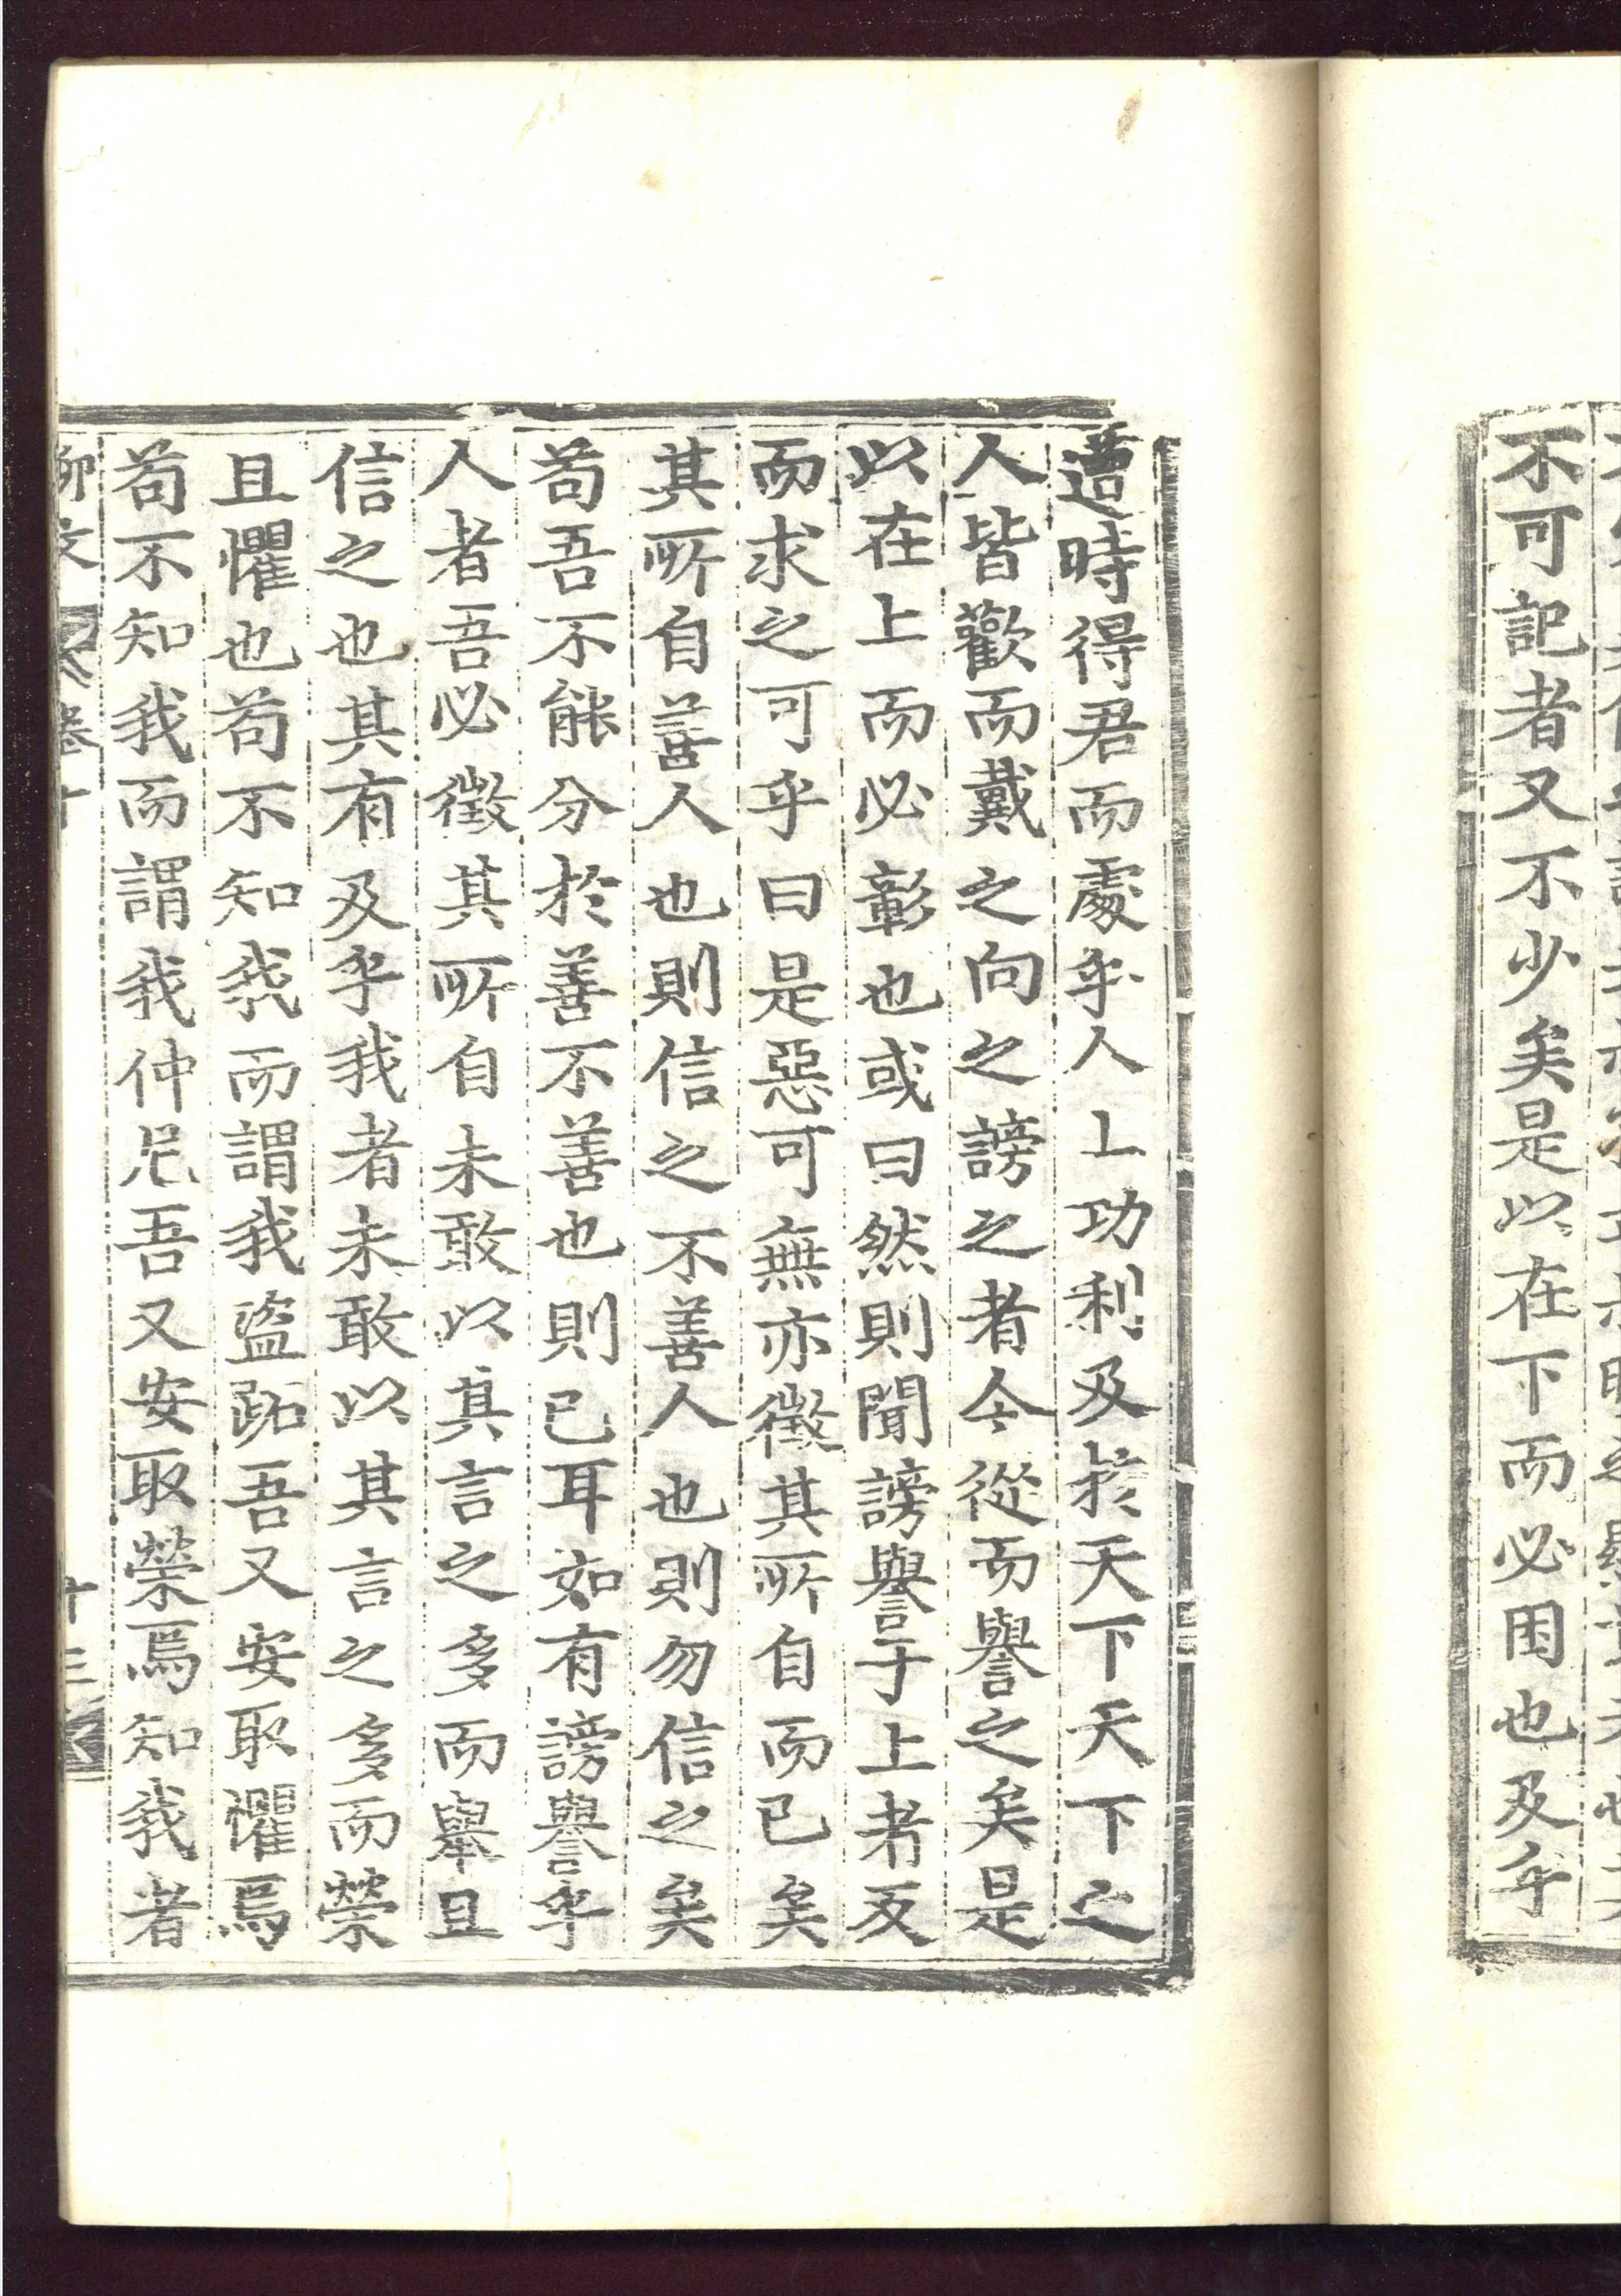 不可記者又不少矣是以在下而必困也及乎
遭時得君而處乎人上功利及於天下天下之
人皆歡而戴之向之謗之者今從而譽之矣是
以在上而必彰也或曰然則聞謗譽于上者反
而求之可乎曰是惡可無亦徵其所自而已矣
其所自善人也則信之不善人也則勿信之矣
苟吾不能分於善不善也則已耳如有謗譽乎
人者吾必徵其所自未敢以其言之多而舉且
信之也其有及乎我者未敢以其言之多而榮
且懼也苟不知我而謂我盜跖吾又安取懼焉
苟不知我而謂我仲尼吾又安取榮焉知我者
柳文 卷十 十三